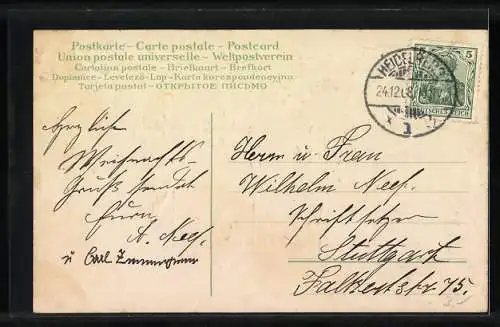 Postkarte – Carte postale – Postcard
Union postale universelle – Weltpostverein
Cartolina postale – Briefkaart – Brefkort
Dopisnice – Levelező-Lap – Karta korespondencyjna
Tarjeta postal – ОТКРЫТОЕ ПИСЬМО
5
HEIDELBERG
24.12.08
DEUTSCHES REICH
1
Herzlichen
Weihnachts-
Gruß sendet
Euer
A. Nees.
u Carl Zimmermann
Herrn u. Frau
Wilhelm Nees.
Schriftsetzer
Stuttgart
Falkertstr 75.